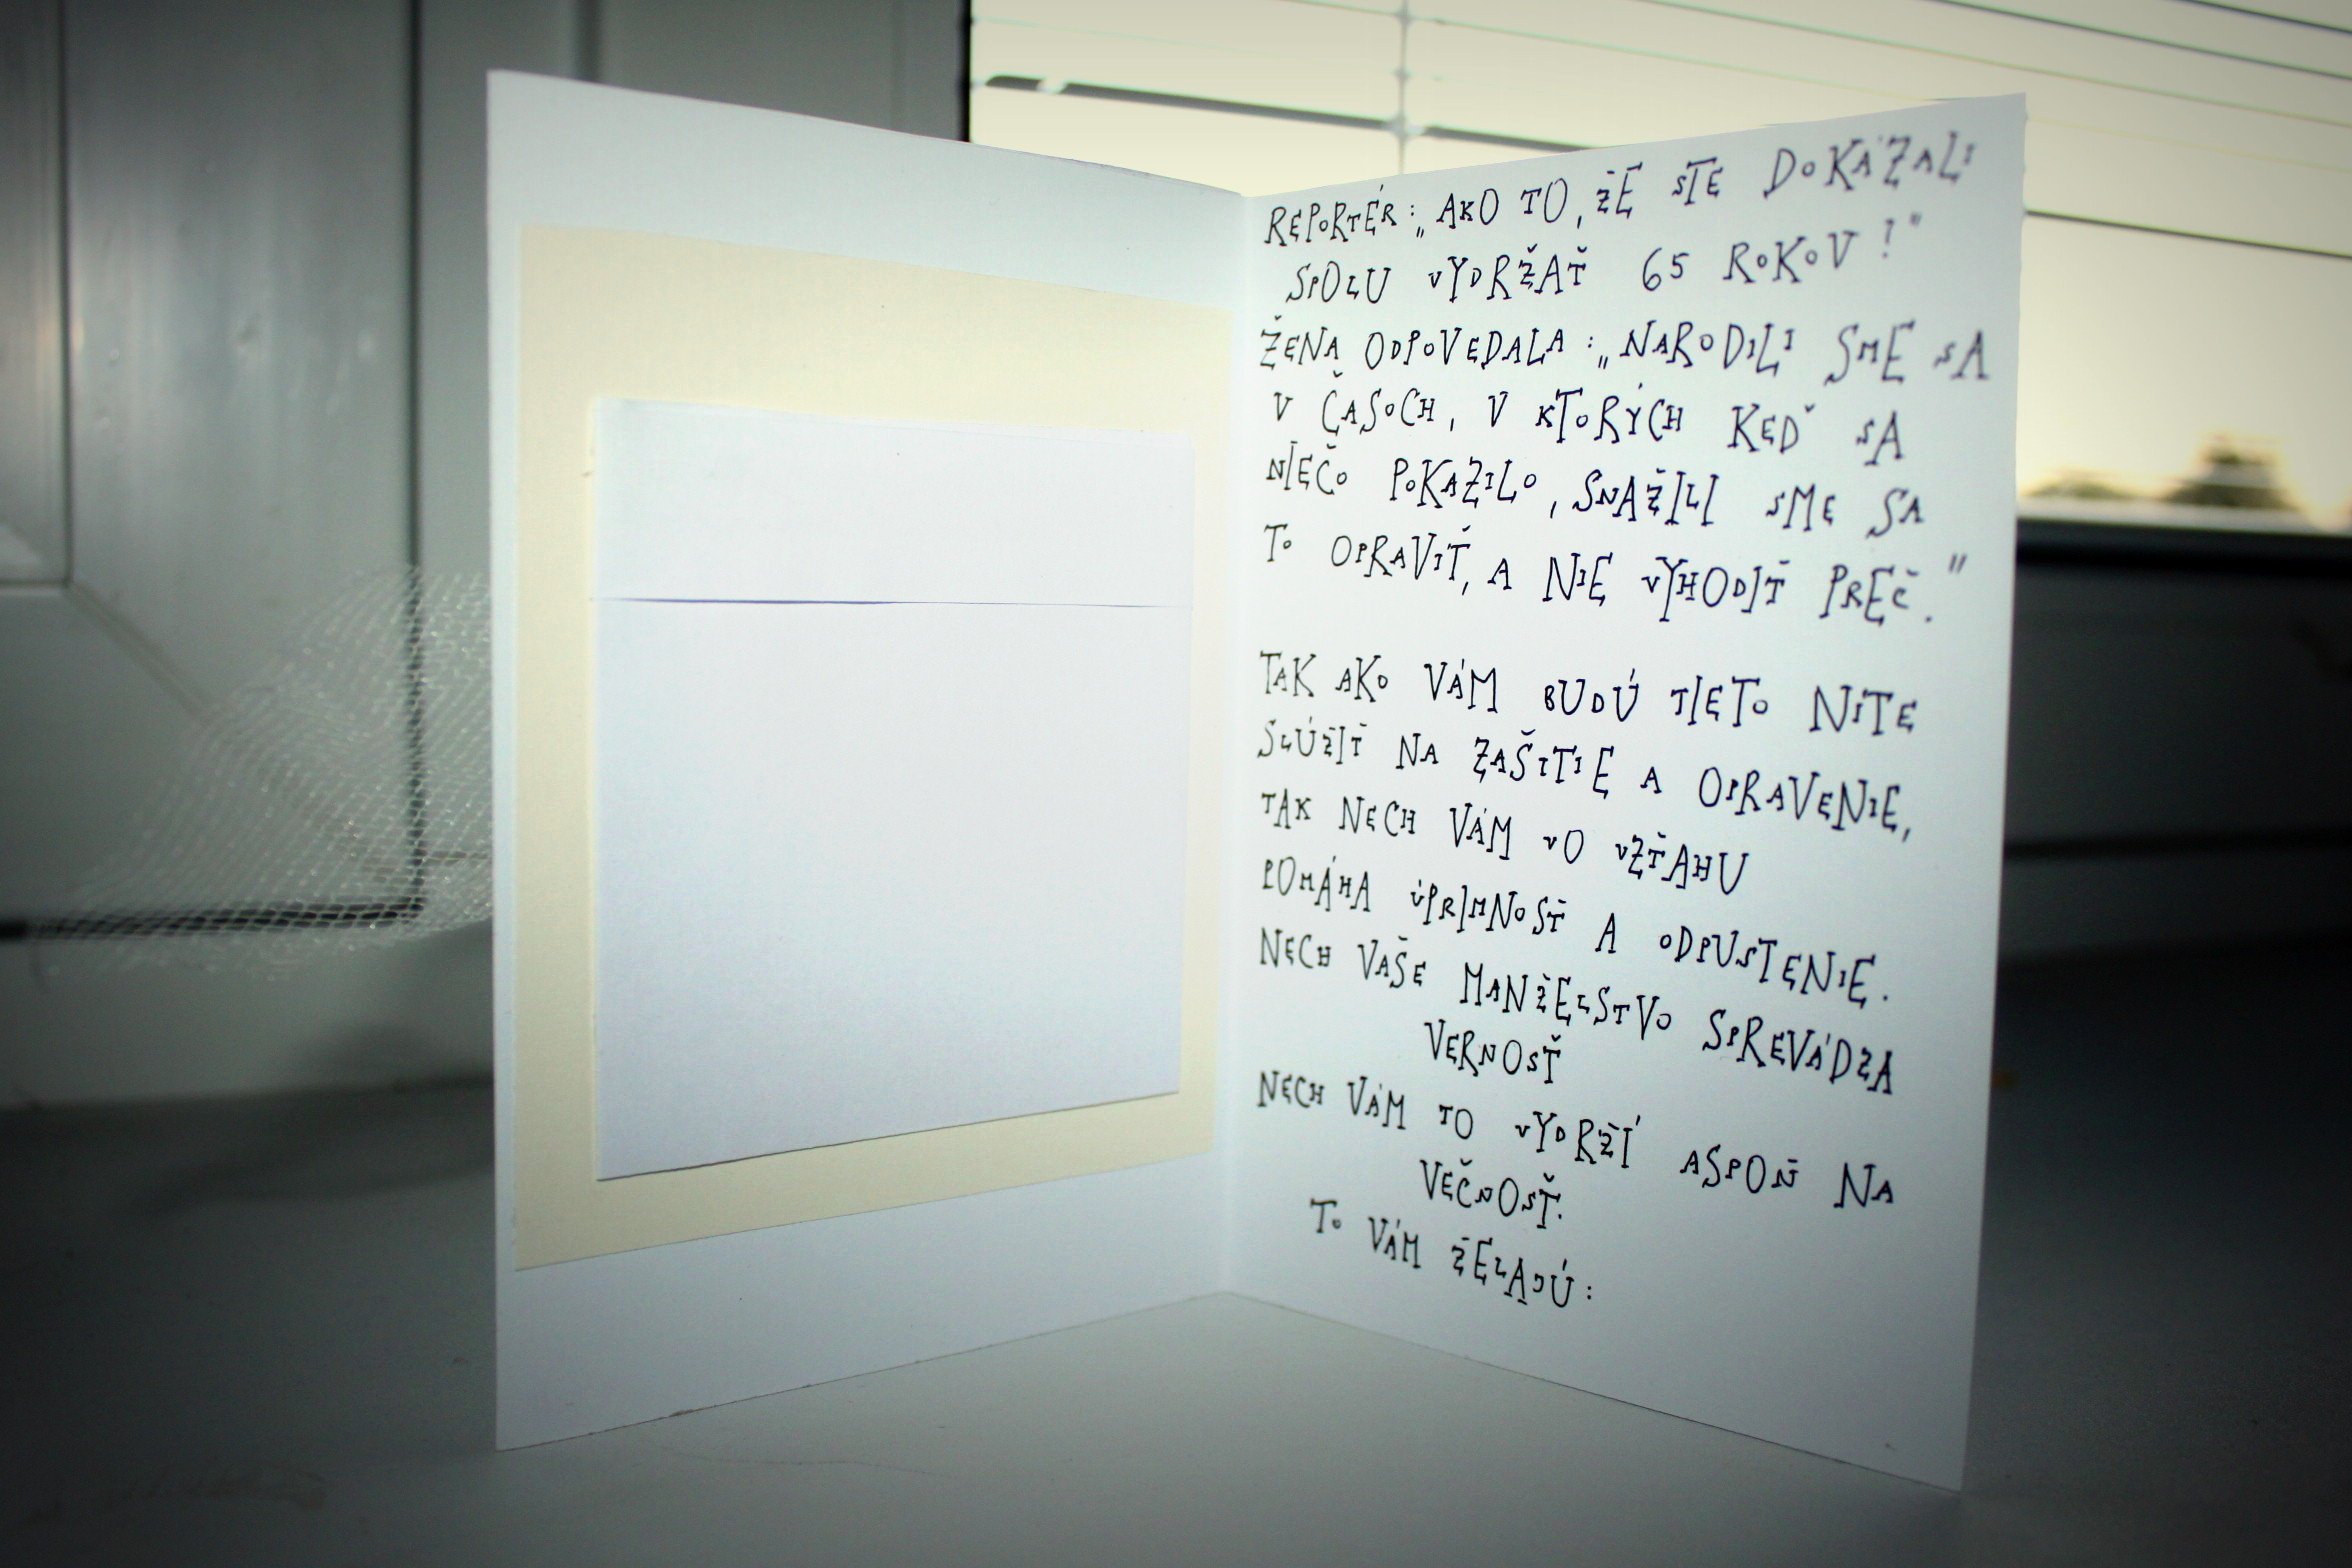 REPORTÉR: „AKO TO, ŽE STE DOKÁZALI
SPOLU VYDRŽAŤ 65 ROKOV?"
ŽENA ODPOVEDALA: „NARODILI SME SA
V ČASOCH, V KTORÝCH KEĎ SA
NIEČO POKAZILO, SNAŽILI SME SA
TO OPRAVIŤ, A NIE VYHODIŤ PREČ."
TAK AKO VÁM BUDÚ TIETO NITE
SLÚŽIŤ NA ZAŠITIE A OPRAVENIE,
TAK NECH VÁM VO VZŤAHU
POMÁHA ÚPRIMNOSŤ A ODPUSTENIE.
NECH VAŠE MANŽELSTVO SPREVÁDZA
VERNOSŤ
NECH VÁM TO VYDRŽÍ ASPOŇ NA
VEČNOSŤ.
TO VÁM ŽELAJÚ: